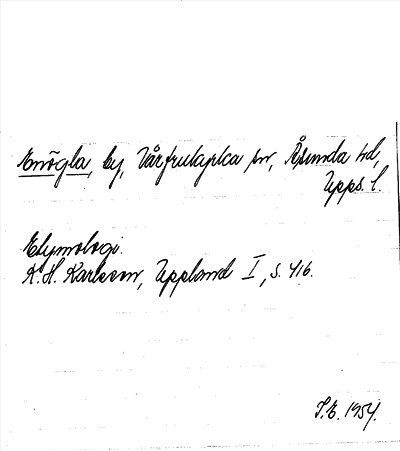 Enögla, by, Vårfrukyrka sn, Åsunda hd,
Upps. l.
Etymologi.
K. H. Karlsson, Uppland I, s. 416.
S.E. 1954.